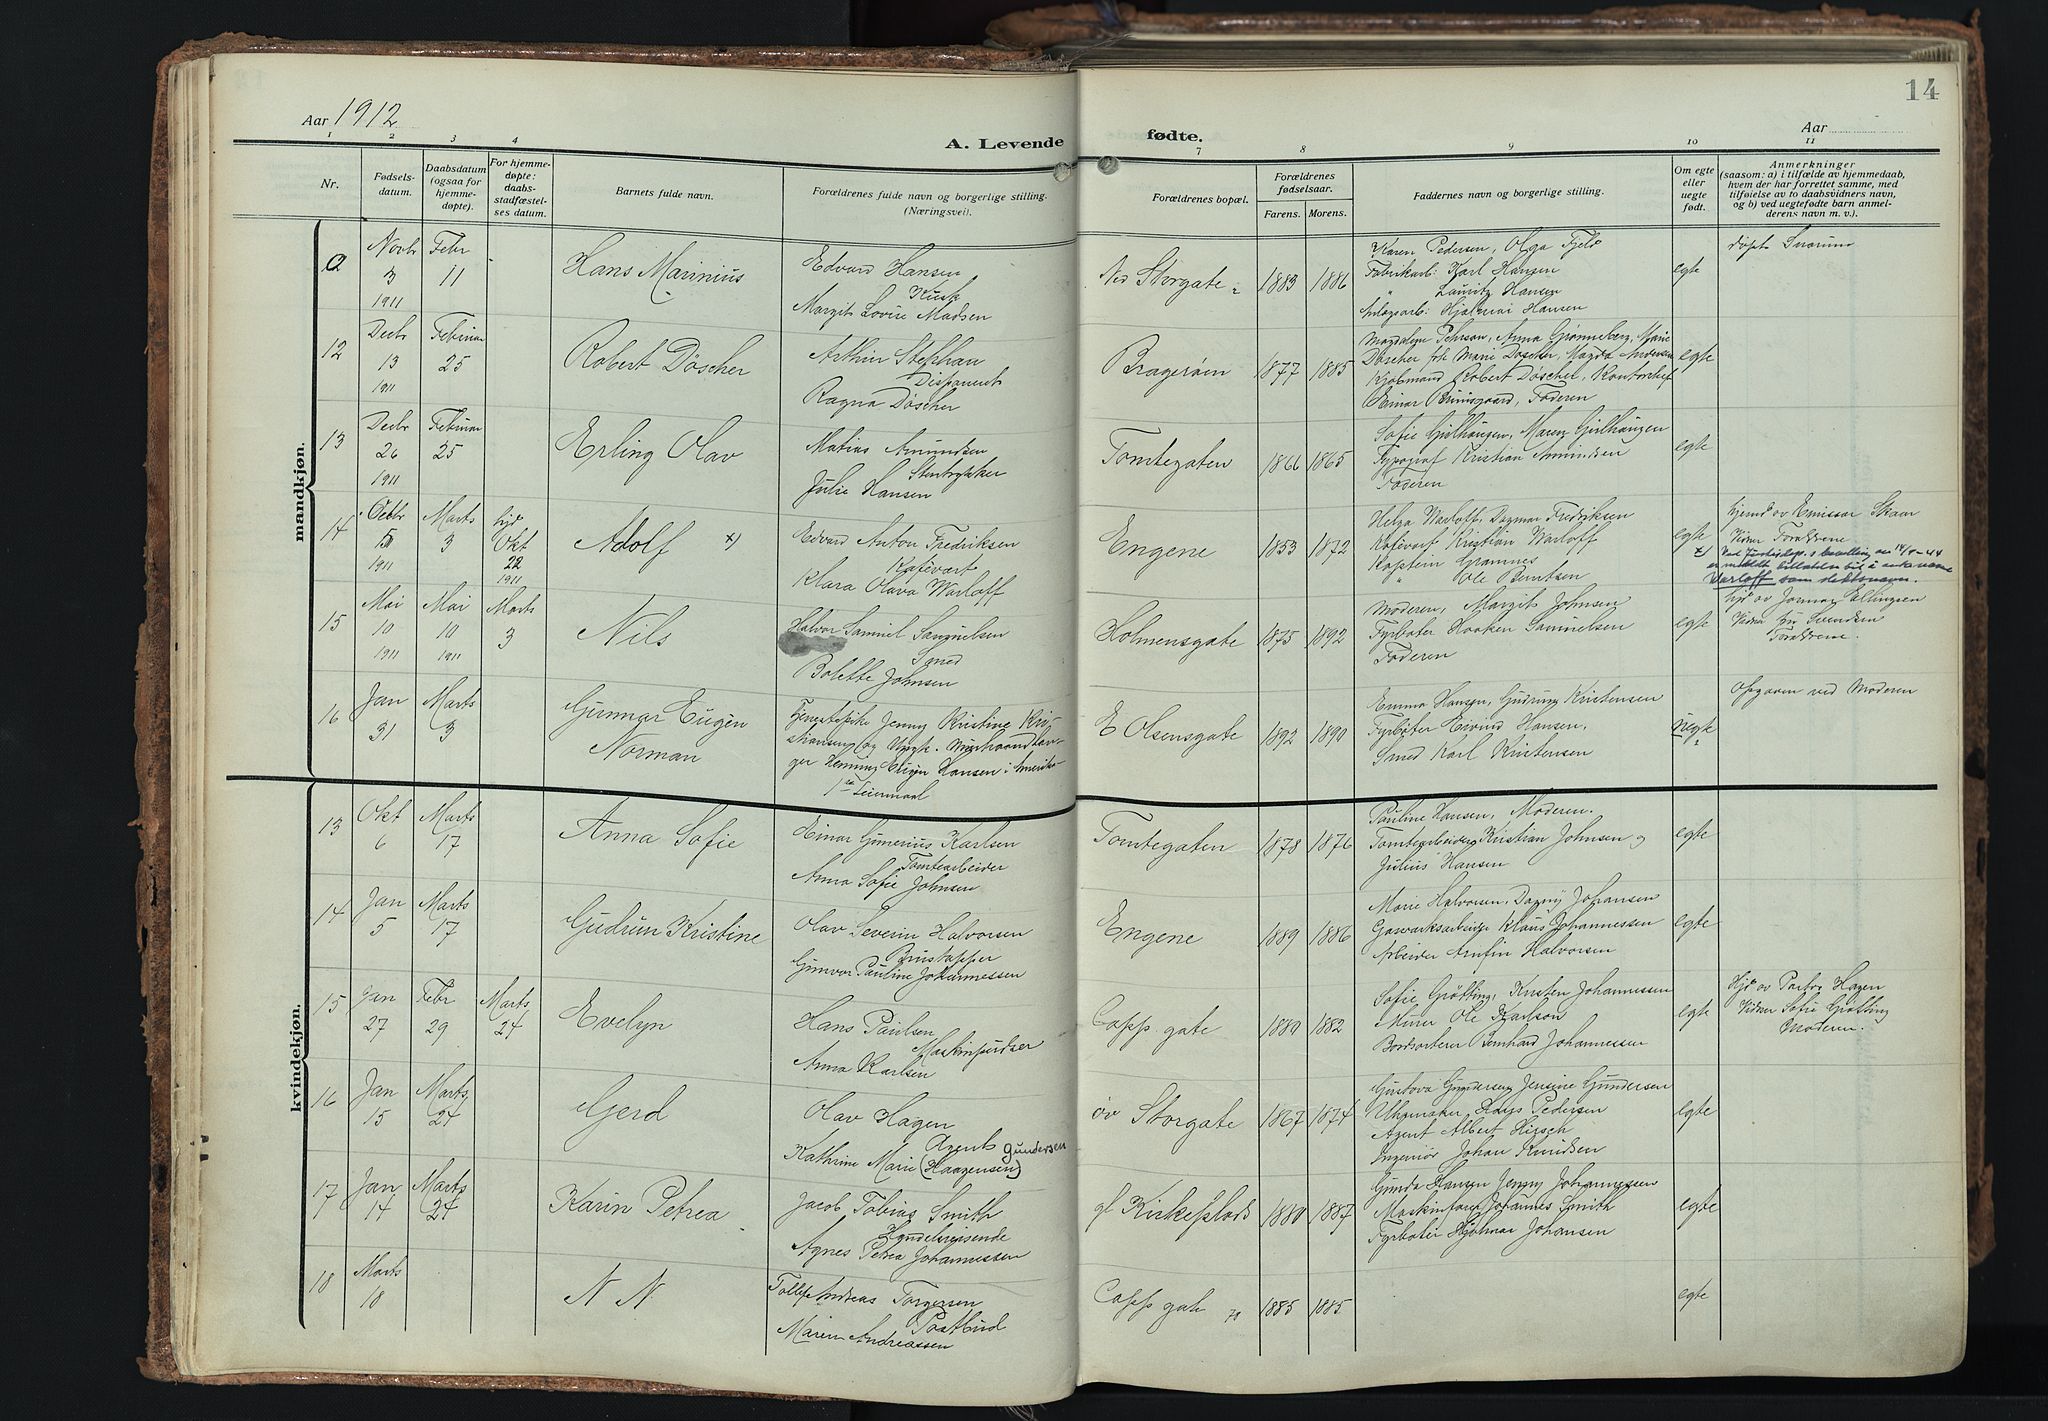 14
Aar 1912
Aar
A. Levende
fødte.
1 2 3 4
7 8 9 10 11
Nr.
Fødsels-
datum.
Daabsdatum
(ogsaa for
hjemme-
døpte).
For hjemme-
døpte:
daabs-
stadfæstel-
ses datum.
Barnets fulde navn.
Forældrenes fulde navn og borgerlige stilling.
(Næringsvei).
Forældrenes bopæl.
Forældrenes
fødselsaar.
Farens. Morens.
Faddernes navn og borgerlige stilling.
Om egte
eller
uegte
født.
Anmerkninger
(saasom: a) i tilfælde av hjemmedaab,
hvem der har forrettet samme, med
tilføielse av to daabsvidners navn,
og b) ved uegtefødte barn anmel-
derens navn m. v.).
mandkjøn.
Novbr
3
1911
Febr
11
Hans Marinius
Edvard Hansen
Kusk
Margit Lovise Madsen
Ned Storgate
1883 1886
Karen Pedersen, Olga Fjeld
Fabrikarb: Karl Hansen
" Lauritz Hansen
Hjalmar Hansen
egte
12
Decbr
13
1911
Februar
25
Robert Döscher
Arthur Stephan
Disponent
Ragna Döscher
Bragerøen
1877 1885
Magdalene Pehrson, Anna Grønneberg, Marie
Döscher, frk Marie Döscher, Magda Andersen
Kjøbmand Robert Döscher, Kontorchef
Einar Faderen
egte
13
Decbr
26
1911
Februar
25
Erling Olav
Matias Amundsen
Stentrykker
Julie Hansen
Tomtegaten
1866 1865
Sofie Gulhaugen, Maren Gulhaugen
Typograf Kristian Amundsen
Faderen
egte
14
Octbr
15
1911
Marts
3
hjd
Okt
22
1911
Adolf x)
Edvard Anton Fredriksen
Kafévært
Klara Olava Warloff
Engene
1853 1872
Helga Warloff, Dagmar Fredriksen
Kafévært Kristian Warloff
Kaptein Gramnes
" Ole Berntsen
egte
hjemd av Emissær Skaar
Vidner Forældrene
x) Ved Justisdep.s bevilling av
er meldt tillatelse til å anta navnet
Warloff som slektsnavn.
15
Mai
10
1911
Mai
10
1911
Marts
3
Nils
Halvor Samuel Samuelsen
Smed
Bolette Johnsen
Holmensgate
1875 1892
Moderen, Margit Johnsen
Fyrbøter Haaken Samuelsen
Faderen
egte
hjd av Jormor Ellingsen
Vidner Svendsen
Forældrene.
16
Jan
31
Marts
3
Gunnar Eugen
Norman
Tjenestepike Jenny Kristine Kri-
stiansen og Ungk. Murhaandlan-
ger Henning Eugen Hansen i Amerika
1ste Leiermaal
E Olsensgate
1892 1890
Emma Hansen, Gudrun Kristensen
Fyrbøter Eivind Hansen,
Smed Karl Kristensen
uegte
Opgaven ved Moderen
kvindekjøn.
13
Okt
6
Marts
17
Anna Sofie
Einar Gunerius Karlsen
Tomtearbeider
Anna Sofie Johnsen
Tomtegaten
1878 1876
Pauline Hansen, Moderen.
Tomtearbeider Kristian Johnsen og
Julius Hansen
egte
14
Jan
5
Marts
17
Gudrun Kristine
Olav Severin Halvorsen
Brustapper
Gunvor Pauline Johannessen
Engene
1889 1886
Marie Halvorsen, Dagny Johansen
Gasværksarbeider Klaus Johannessen
Arbeider Arnfin Halvorsen
egte
15
Jan
27
Febr
29
Marts
24
Evelyn
Hans Paulsen
Maskinpudser
Anna Karlsen
Capp. gate
1880 1882
Sofie Grötting, Kristen Johannessen
Murer Ole Karlson
Bordsorterer Bernhard Johannessen
egte
Hjd av Pastor Hagen
Vidner Sofie Grötting
Moderen.
16
Jan
15
Marts
24
Gerd
Olav Hagen
Agent
Kathrine Marie (Haagensen) Gundersen
øv Storgate
1867 1874
Gustava Gundersen Jensine Gundersen
Uhrmaker Hans Pedersen
Agent Albert Hirsch
Ingeniør Johan Knudsen
egte
17
Jan
14
Marts
24
Karin Petrea
Jacob Tobias Smith
Handelsreisende
Agnes Petrea Johannessen
gl Kirkeplads
1880 1887
Gunda Hansen Jenny Johannessen
Maskinforer Johannes Smith
Fyrbøter Hjalmar Johansen
egte
18
Marts
18
N N
Tollef Andreas Torgersen
Postbud
Maren Andreassen
Capp gate 70
1885 1885
egte